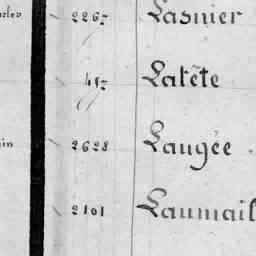 2267 Lasnier
457 Latête
2628 Laugée
2101 Laumail